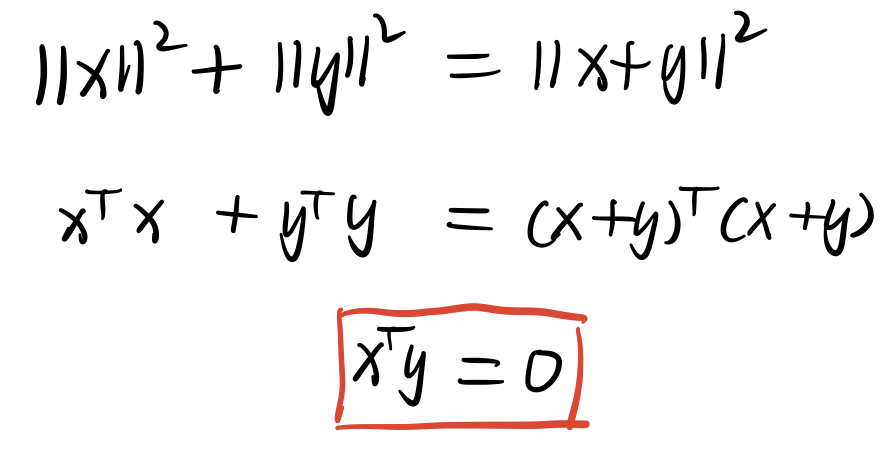 ||x||² + ||y||² = ||x+y||²
xᵀx + yᵀy = (x+y)ᵀ(x+y)
xᵀy = 0